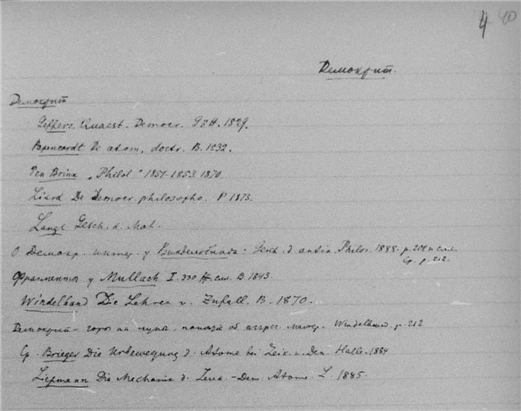 4 40
Демокрит.
Демокрит
Geffers. Quaest. Democr. Gött. 1829.
Papencordt De atom. doctr. B. 1832.
Ten Brink „Philol" 1851-1853. 1870.
Liard De Democr philosopho. P. 1873.
Lange Gesch. d. Mat.
О Демокр. у Виндельбанда - Gesch. d. antik. Philos. 1888. p. 208
Ср. p. 212.
Фрагменты у Mullach I. 330 ff. B. 1843.
Windelband Die Lehren v. Zufall. B. 1870.
Демокрит - Windelband. p. 212
Ср. Brieger Die Urbewegung d. Atome bei Leuk. u. Dem. Halle. 1884
Liepmann Die Mechanik d. Leuk.-Dem. Atome L. 1885.